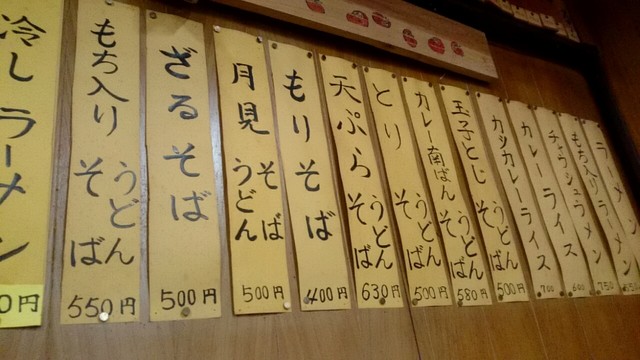 ラーメン
もち入りラーメン
チャーシューメン
750
カレーライス
600
カツカレーライス
700
玉子とじ
うどん
そば
500円
カレー南ばん
うどん
そば
580円
とり
うどん
そば
500円
天ぷら
うどん
そば
630円
もりそば
400円
月見
そば
うどん
500円
ざるそば
500円
もち入り
うどん
そば
550円
冷しラーメン
0円